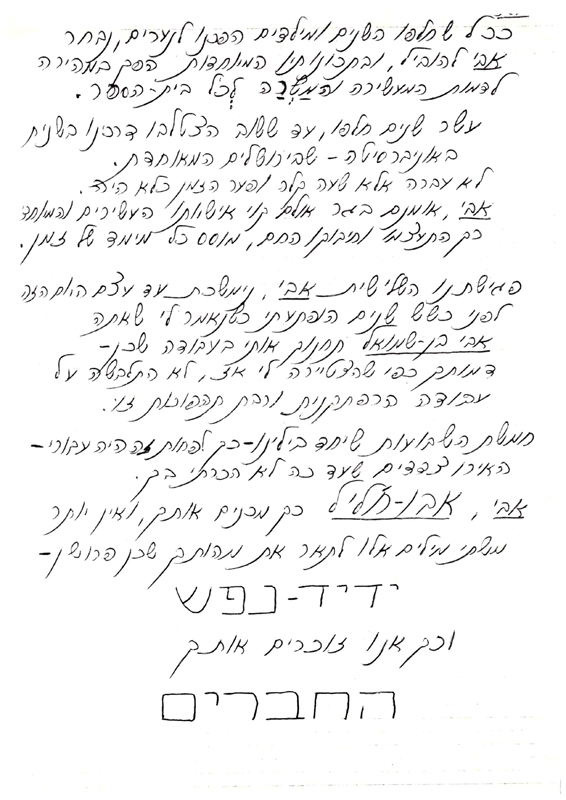 ככל שחלפו השנים ומילדים הפכנו לנערים, נבחר
אבי להוביל, ובתכונותיו המיוחדות הפך במהירה
לדמות המעשירה והמַשְׁרָה לְכל בית-הספר.
עשר שנים חלפו, עד ששוב הצטלבו דרכינו בשנית
באוניברסיטה - שבירושלים המאוחדת.
לא עברה אלא שעה קלה ופער הזמן כלא היה.
אבי, אומנם בגר אולם קווי אישיותו העשירים והמיוחד
כך התעצמו וחיבוקו החם, מוסס כל מימד של זמן.
פגישתנו השלישית אבי, נימשכת עד עצם היום הזה
לפני כשש שנים הופתעתי כשנאמר לי שאתה
אבי בן-שמואל תחנוך אותי בעבודה שכן-
דמותך כפי שהצטיירה לי אצ, לא התלבשה על
עבודה הרפתקנית ורבת תהפוכות זו.
חמשת השבועות שיחד בילינו-כך לפחות זה היה עבורי-
האירו צדדים שעד כה לא הכרתי בך.
אבי, אבו-חליל כך מכנים אותך, ואין יותר
משתי מילים אלו לתאר את מהותך שכן פרושן-
ידיד-נפש
וכך אנו זוכרים אותך
החברים